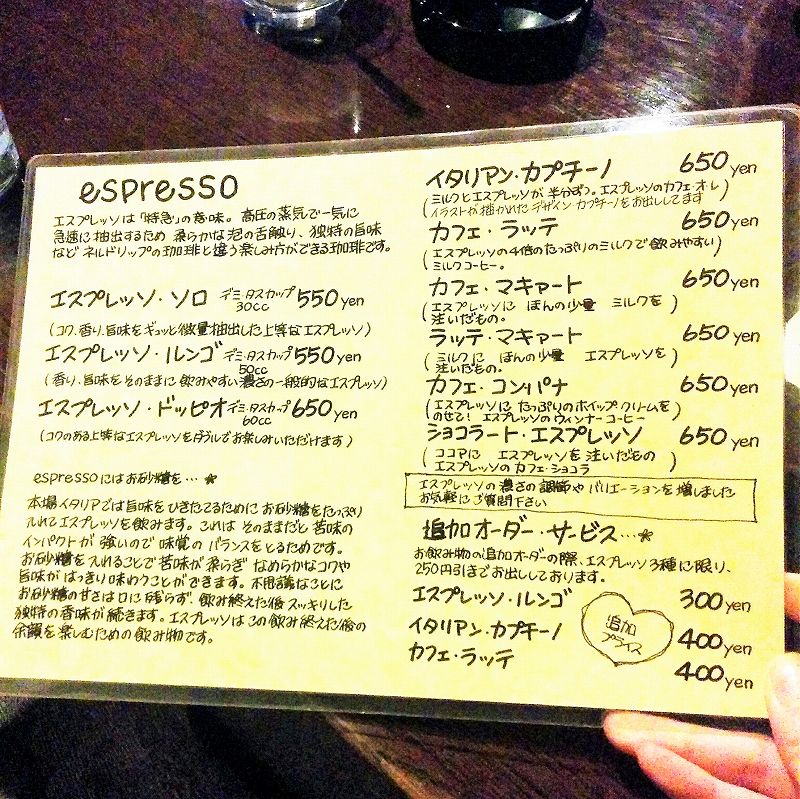 espresso
エスプレッソは「特急」の意味。高圧の蒸気で一気に
急速に抽出するため 柔らかな泡の舌触り、独特の旨味
など ネルドリップの珈琲と違う楽しみ方ができる珈琲です。
エスプレッソ・ソロ デミタスカップ 30cc 550yen
(コク、香り、旨味をギュッと微量抽出した上等なエスプレッソ)
エスプレッソ・ルンゴ デミタスカップ 50cc 550yen
(香り、旨味をそのままに飲みやすい濃さの一般的なエスプレッソ)
エスプレッソ・ドッピオ デミタスカップ 60cc 650yen
(コクのある上等なエスプレッソをダブルでお楽しみいただけます)
espressoにはお砂糖を…*
本場イタリアでは旨味をひきたてるために お砂糖をたっぷり
入れてエスプレッソを飲みます。これは そのままだと 苦味の
インパクトが 強いので 味覚の バランスをとるためです。
お砂糖を入れることで 苦味が 柔らぎ なめらかなコクや
旨味が はっきり 味わうことができます。不思議なことに
お砂糖の甘さは口に 残らず、飲み終えた後 スッキリした
独特の香味が 続きます。エスプレッソは この飲み終えた後の
余韻を 楽しむための飲み物です。
イタリアン・カプチーノ 650yen
(ミルクとエスプレッソが 半分ずつ。エスプレッソのカフェ・オ・レ
イラストが描かれた デザイン・カプチーノをお出ししてます)
カフェ・ラッテ 650yen
(エスプレッソの4倍のたっぷりのミルクで飲みやすい
ミルクコーヒー。)
カフェ・マキャート 650yen
(エスプレッソに ほんの少量 ミルクを
注いだもの。)
ラッテ・マキャート 650yen
(ミルクに ほんの少量 エスプレッソを
注いだもの。)
カフェ・コンパナ 650yen
(エスプレッソに たっぷりのホイップクリームを
のせて! エスプレッソのウィンナーコーヒー)
ショコラート・エスプレッソ 650yen
(ココアに エスプレッソを 注いだもの
エスプレッソの カフェ・ショコラ)
エスプレッソの 濃さの 調節や バリエーションを 増しました
お気軽に ご質問下さい
追加オーダー・サービス…*
お飲み物の追加オーダーの際、エスプレッソ3種に限り、
250円引きで お出ししております。
エスプレッソ・ルンゴ 300yen
イタリアン・カプチーノ 400yen
カフェ・ラッテ 400yen
追加
プライス